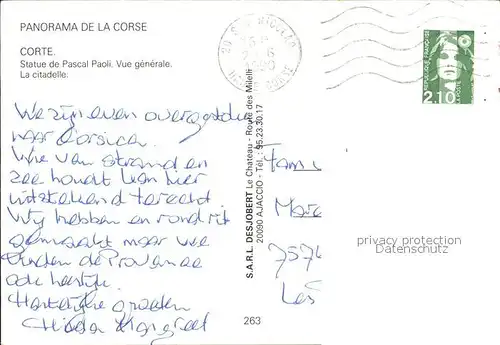 PANORAMA DE LA CORSE
CORTE.
Statue de Pascal Paoli. Vue générale.
La citadelle.
We zijn even overgestoken
naar Corsica.
Wie van strand en
zee houdt kan hier
uitstekend terecht
Wij hebben en rondrit
gemaakt maar we
vinden de Provence
ook heerlijk.
Hartelijke groeten
Margreet
S.A.R.L. DESJOBERT Le Chateau - Route des Milelli
20090 AJACCIO - Tél. : 95.23.30.17
263
REPUBLIQUE FRANÇAISE
2,10
Fam
757
privacy protection
Datenschutz